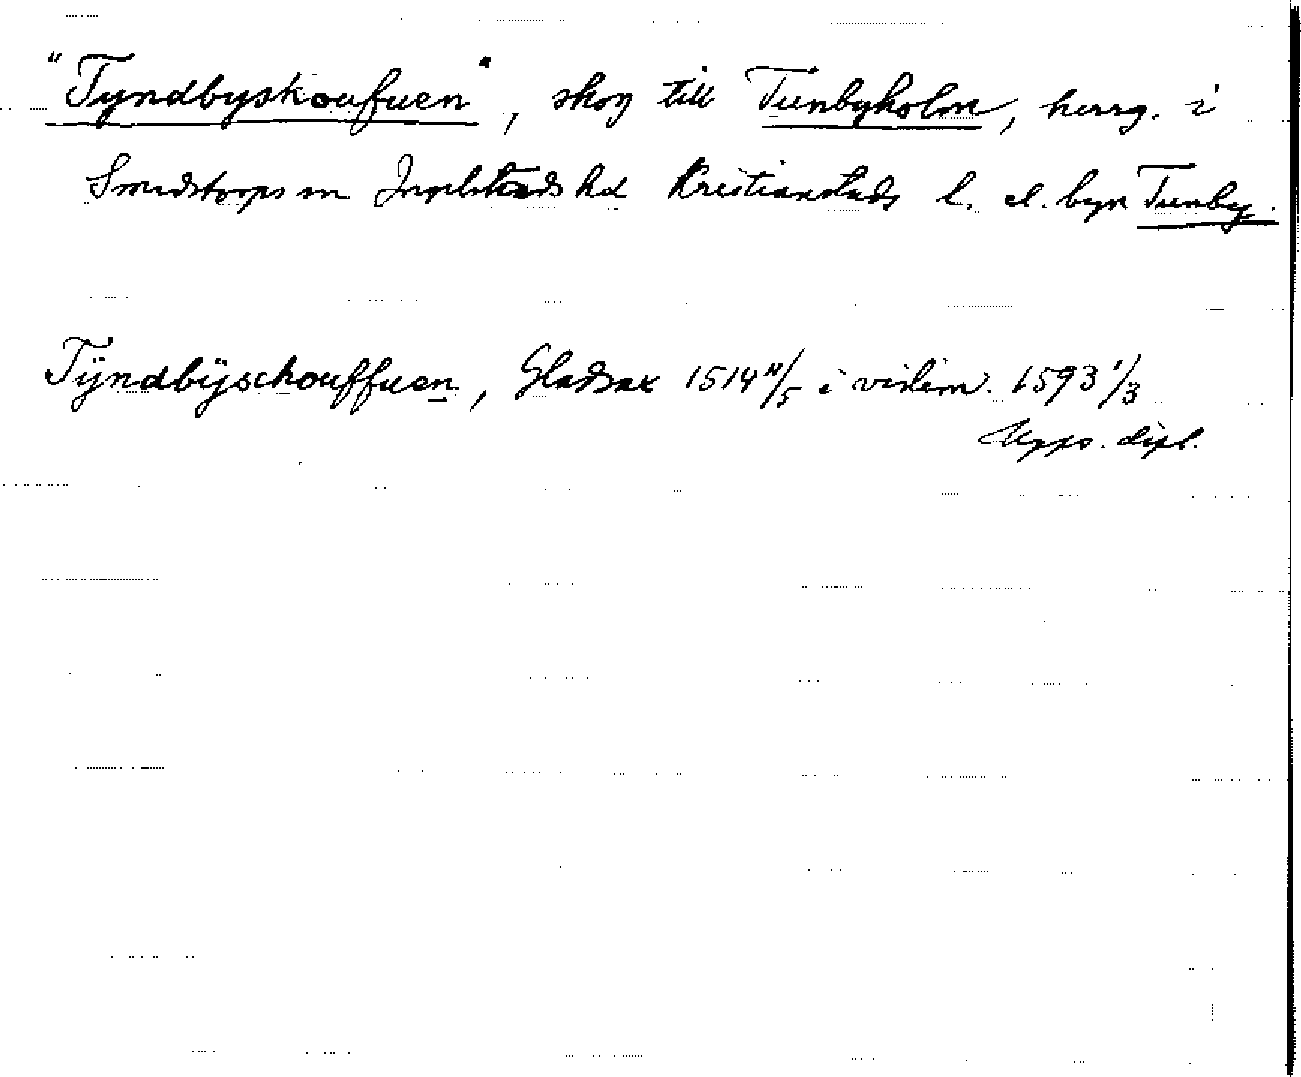 "Tyndbyskoufuen", skog till Tunbyholm, herrg. i
Smedstorps sn Ingelstads hd Kristianstads l. el. byn Tunby.
Tÿndbÿschouffuen, Gladsax 1514 11/5 i vidim. 1593 1/3
Upps. dipl.